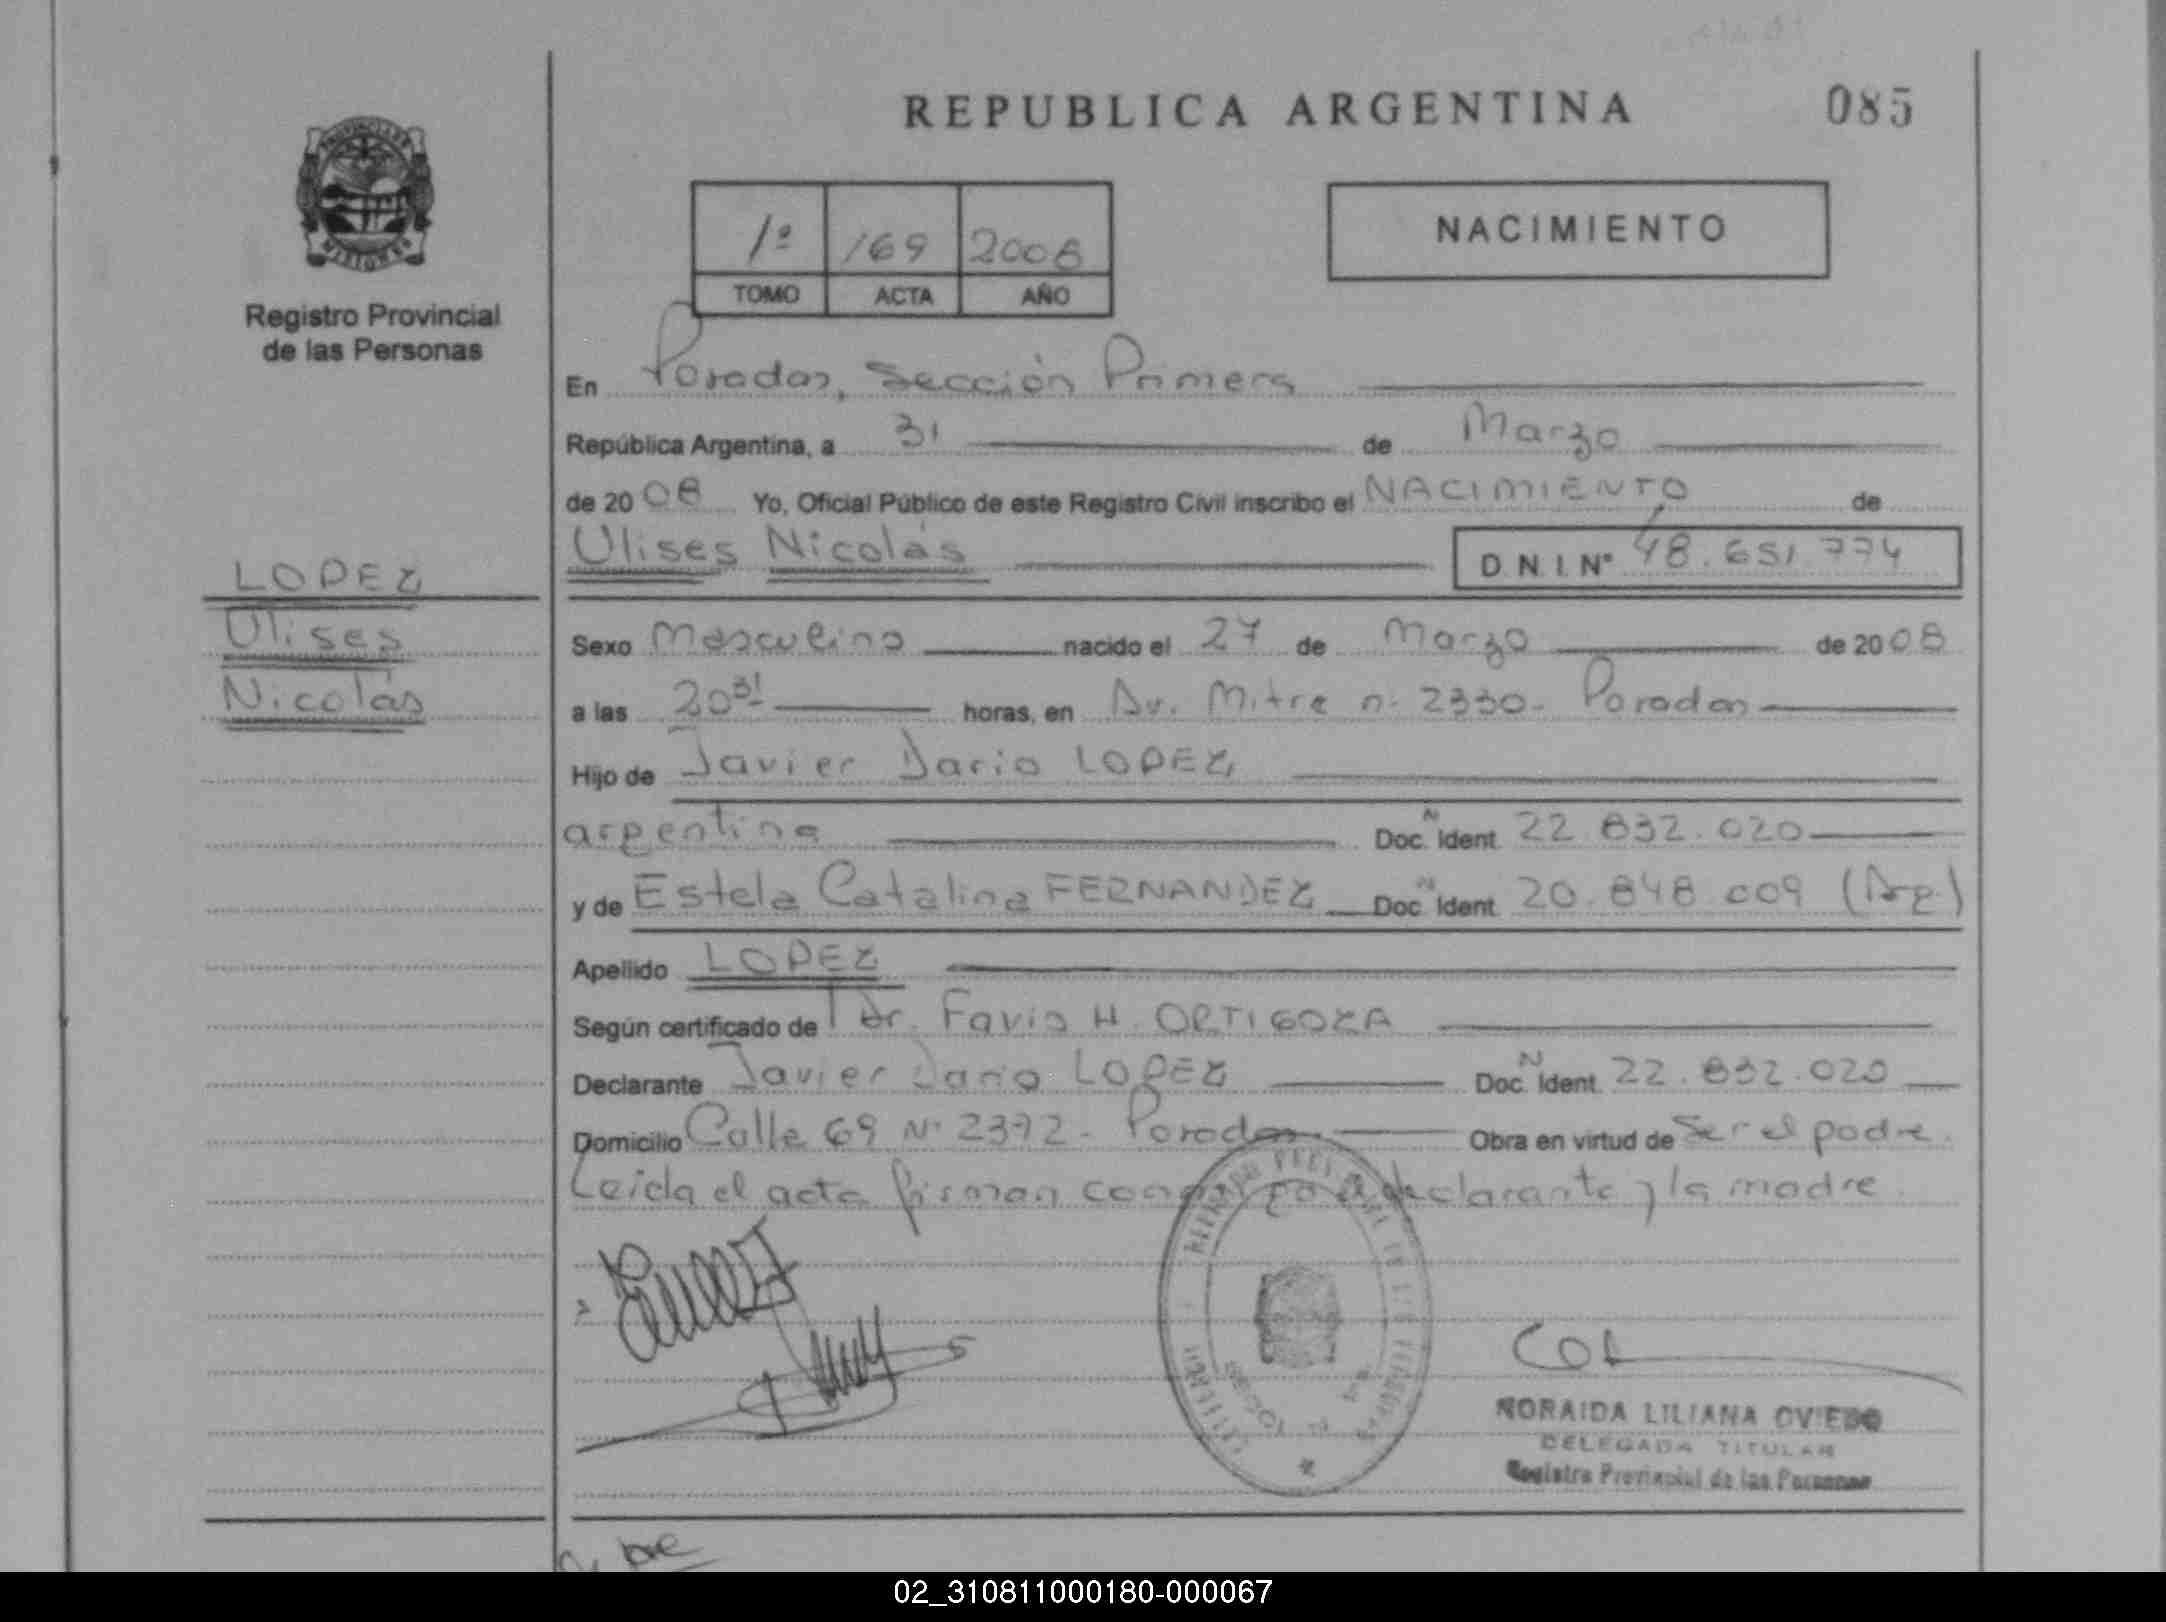 REPUBLICA ARGENTINA
085
MISIONES
Registro Provincial
de las Personas
1º 169 2008
TOMO ACTA AÑO
NACIMIENTO
En Posadas, Sección Primera
República Argentina, a 31 de Marzo
de 2008 Yo, Oficial Público de este Registro Civil inscribo el NACIMIENTO de
Ulises Nicolás D.N.I. Nº 48.651.774
LOPEZ
Ulises
Nicolás
Sexo Masculino nacido el 27 de Marzo de 2008
a las 20 31 horas, en Av. Mitre n. 2330. Posadas
Hijo de Javier Dario LOPEZ
argentina Doc. N Ident. 22.832.020
y de Estela Catalina FERNANDEZ Doc. N Ident. 20.848.009 (Arg.)
Apellido LOPEZ
Según certificado de Dr. Favio H. ORTIGOZA
Declarante Javier Dario LOPEZ Doc. N Ident. 22.832.020
Domicilio Calle 69 Nº 2372. Posadas Obra en virtud de Ser el padre.
Leida el acta firman conmigo el declarante y la madre.
NORAIDA LILIANA OVIEDO
DELEGADA TITULAR
Registro Provincial de las Personas
02_310811000180-000067